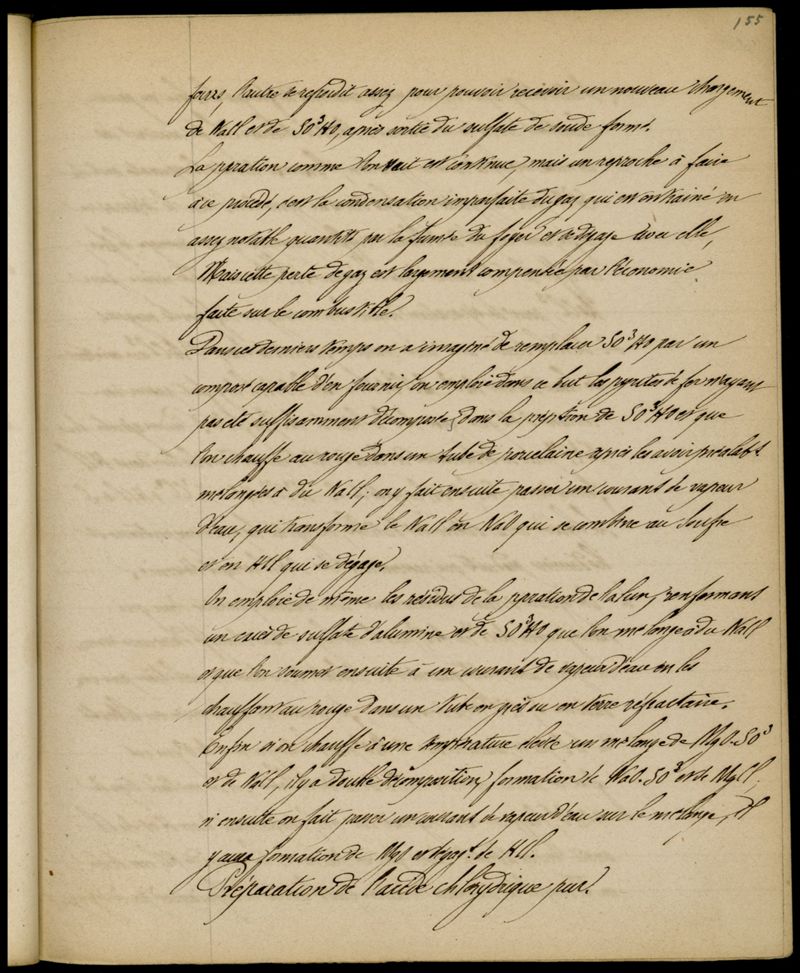 155
fours, l'autre se refroidit assez pour pouvoir recevoir un nouveau chargement
de NaCl et de SO³HO, après sortie du sulfate de soude formé.
La pparation comme l'on voit est continue, mais un reproche à faire
à ce procédé, c'est la condensation imparfaite du gaz qui est entrainé en
assez notable quantité par la fumée du foyer et se dégage avec elle,
Mais cette perte de gaz est largement compensée par l'économie
faite sur le combustible.
Dans ces derniers temps on a imaginé de remplacer SO³HO par un
composé capable d'en fournir, on emploie dans ce but les pyrites de fer n'ayant
pas été suffisamment décomposées dans la prépton de SO³HO et que
l'on chauffe au rouge dans un tube de porcelaine après les avoir préalabt
mélangées à du NaCl; on y fait ensuite passer un courant de vapeur
d'eau, qui transforme le NaCl en NaO qui se combine au soufre
et en HCl qui se dégage.
On emploie de même les résidus de la pparation de l'alun, renfermant
un excès de sulfate d'alumine et de SO³HO que l'on mélange à du NaCl
et que l'on soumet ensuite à un courant de vapeur d'eau en les
chauffant au rouge dans un tube en grès ou en terre réfractaire.
Enfin si on chauffe à une température élevée un mélange de MgO.SO³
et de NaCl, il y a double décomposition, formation de NaO.SO³ et de MgCl;
si ensuite on fait passer un courant de vapeur d'eau sur le mélange, il
y aura formation de MgO et dégagt de HCl.
Préparation de l'acide chlhydrique pur.